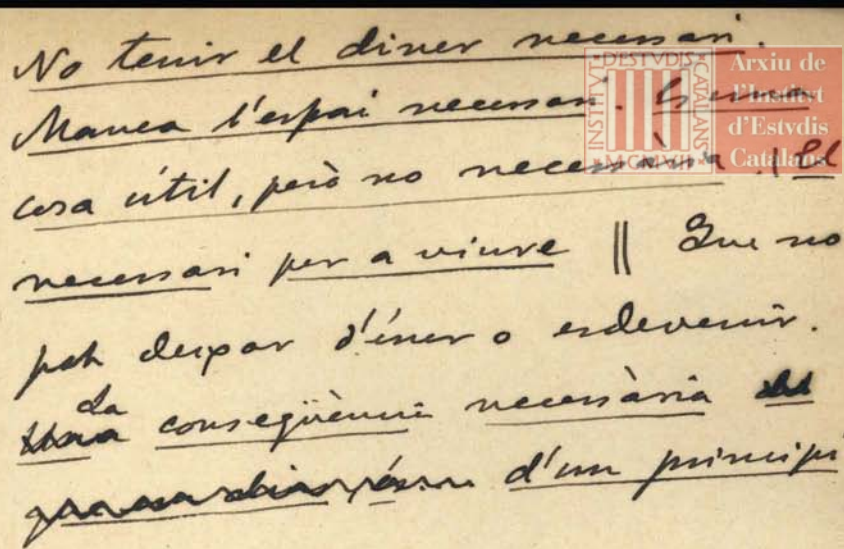 No tenir el diner necessari.
Manca l'espai necessari. És una
cosa útil, però no necessària. | El
necessari per a viure || Que no
pot deixar d'ésser o esdevenir.
La
Una conseqüència necessària
d'un principi
INSTITVT D'ESTVDIS CATALANS MCMVII
Arxiu de
l'Institvt
d'Estvdis
Catalans